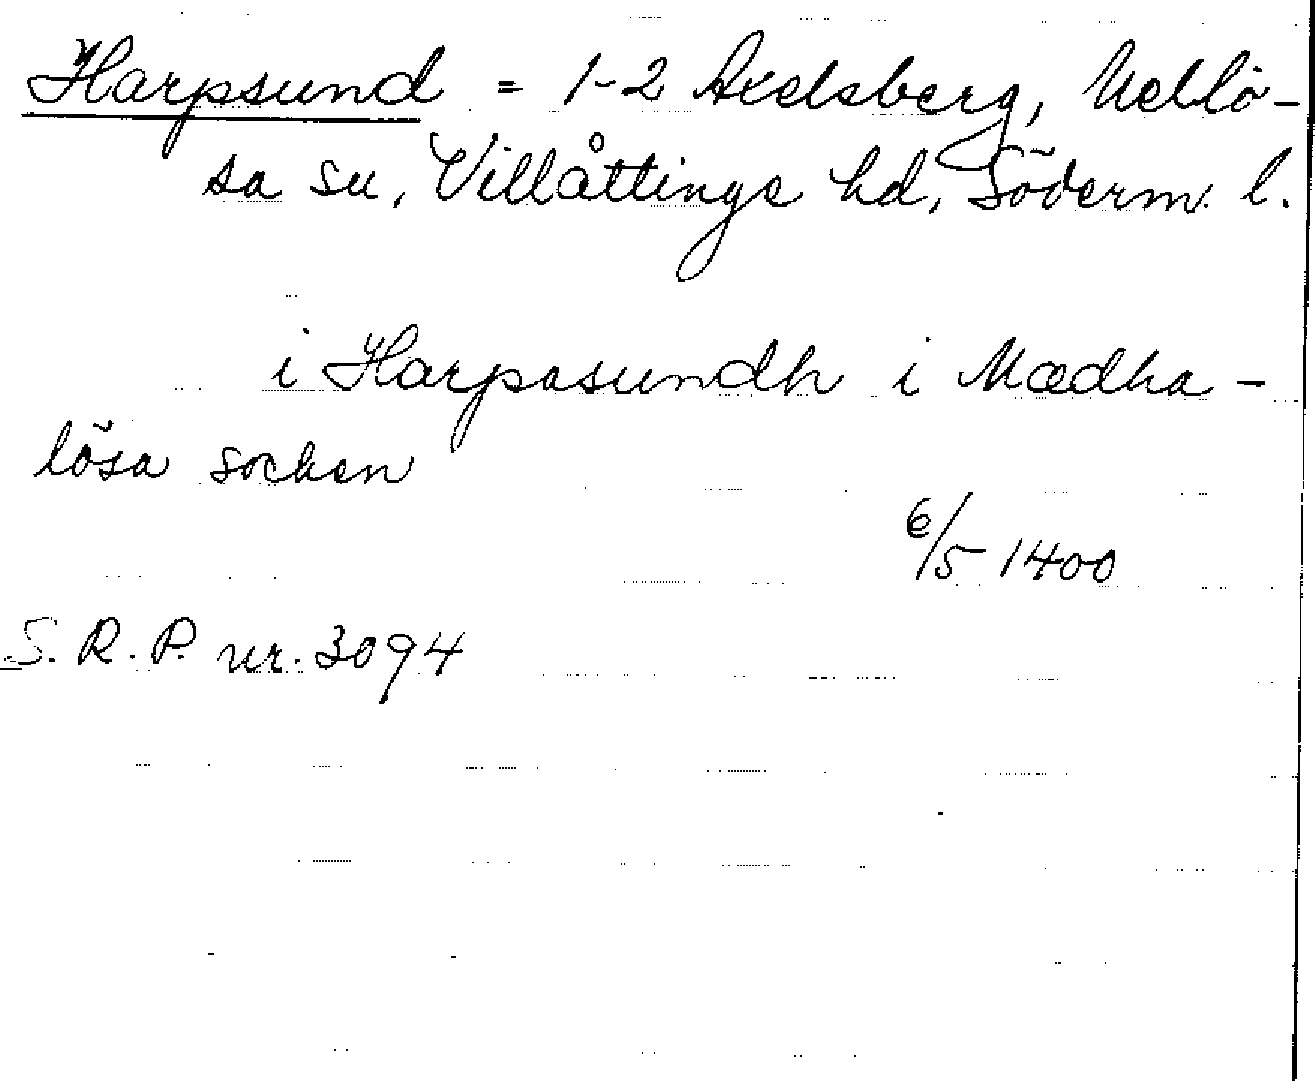 Harpsund = 1-2 Axelsberg, Mellö-
sa sn, Villåttinge hd, Söderm. l.
i Harpasundh i Mædha-
lösa sochen
6/5 1400
S.R.P. nr. 3094